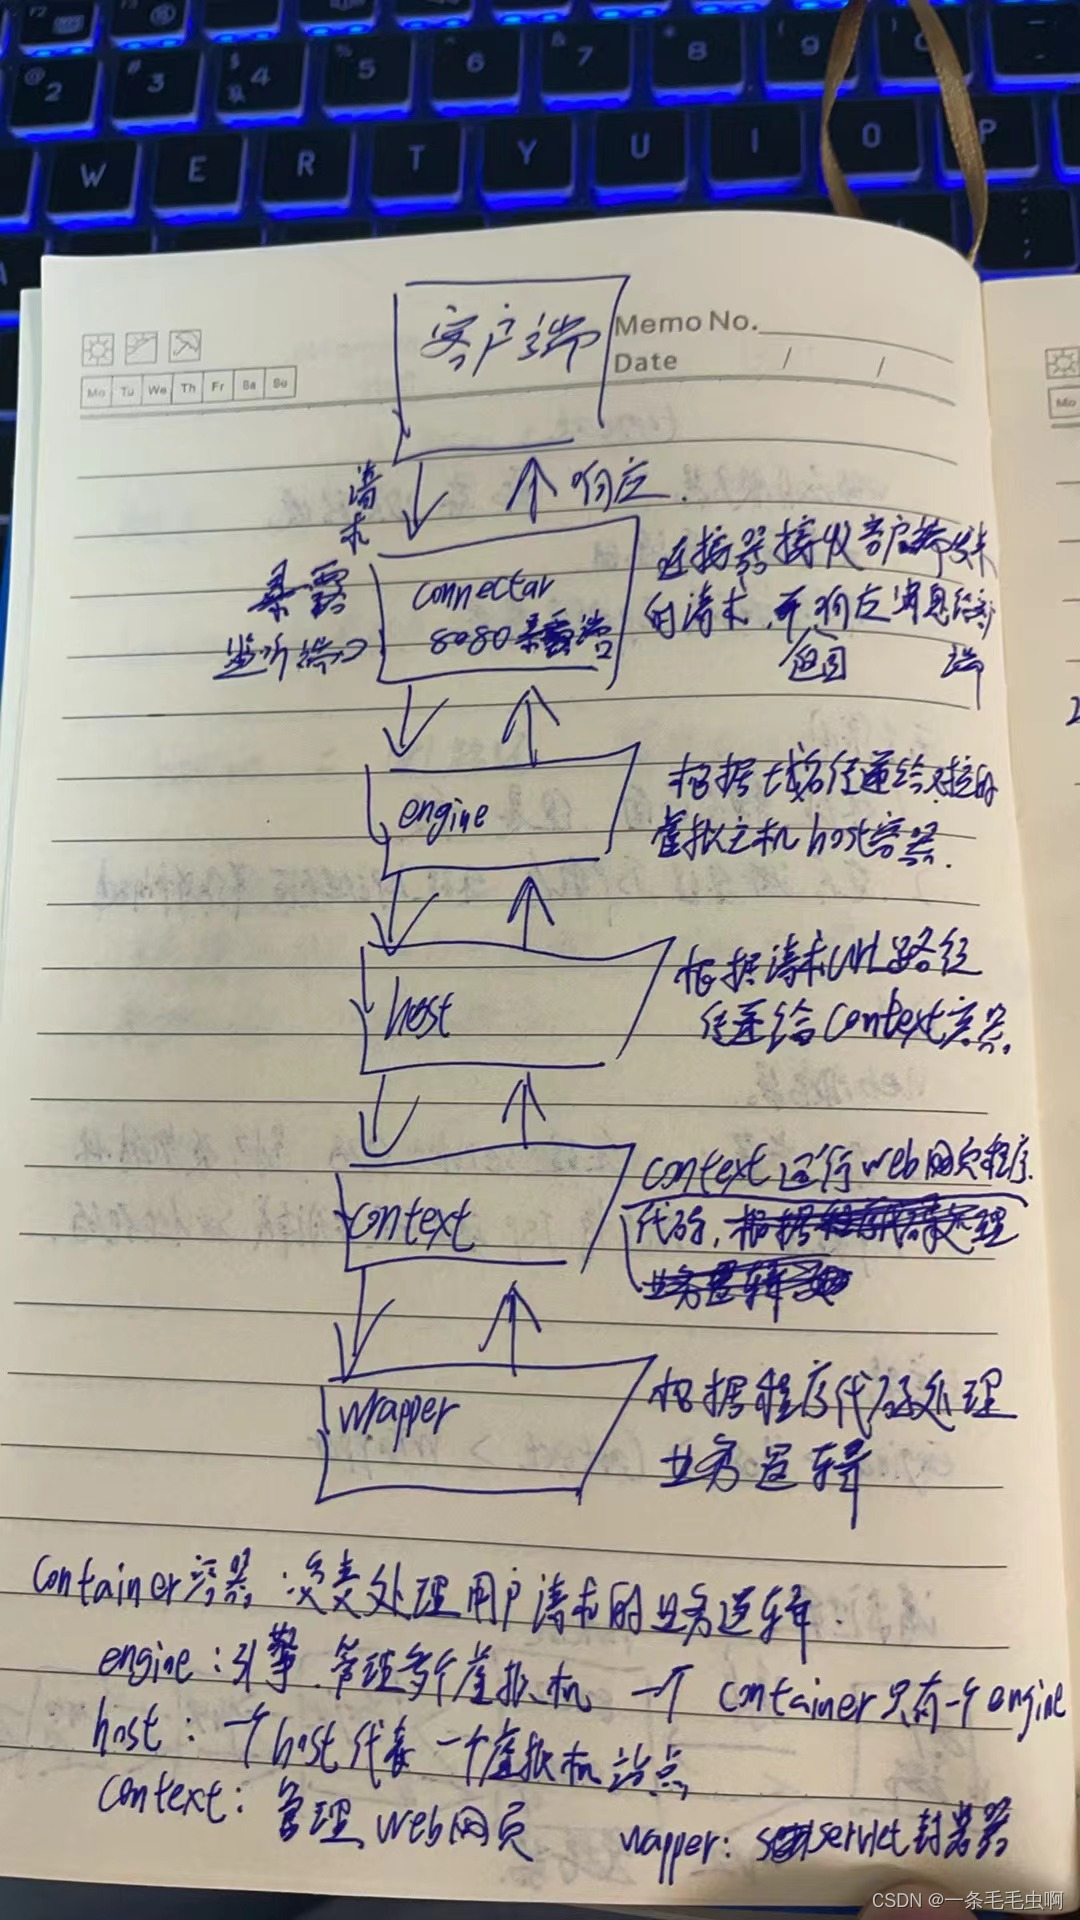 2 3 4 5 6 7 8 9
W E R T Y U I O P
客户端
Memo No.
Date / /
Mo Tu We Th Fr Sa Su
Mo
请求
响应.
暴露
监听端口
connectar
8080暴露端口
连接器接收客户端发来
的请求,并响应消息给客户端
返回
engine
根据域名传递给对应的
虚拟主机host容器.
host
根据请求URL路径
传递给context容器.
context
context运行web网页程序.
代码,根据程序代码处理
业务逻辑
wrapper
根据程序代码处理
业务逻辑
Container容器:负责处理用户请求的业务逻辑.
engine:引擎.管理多个虚拟机 一个 container只有一个engine
host:一个host代表一个虚拟机站点
context:管理web网页 wapper: servlet封装器
CSDN @一条毛毛虫啊